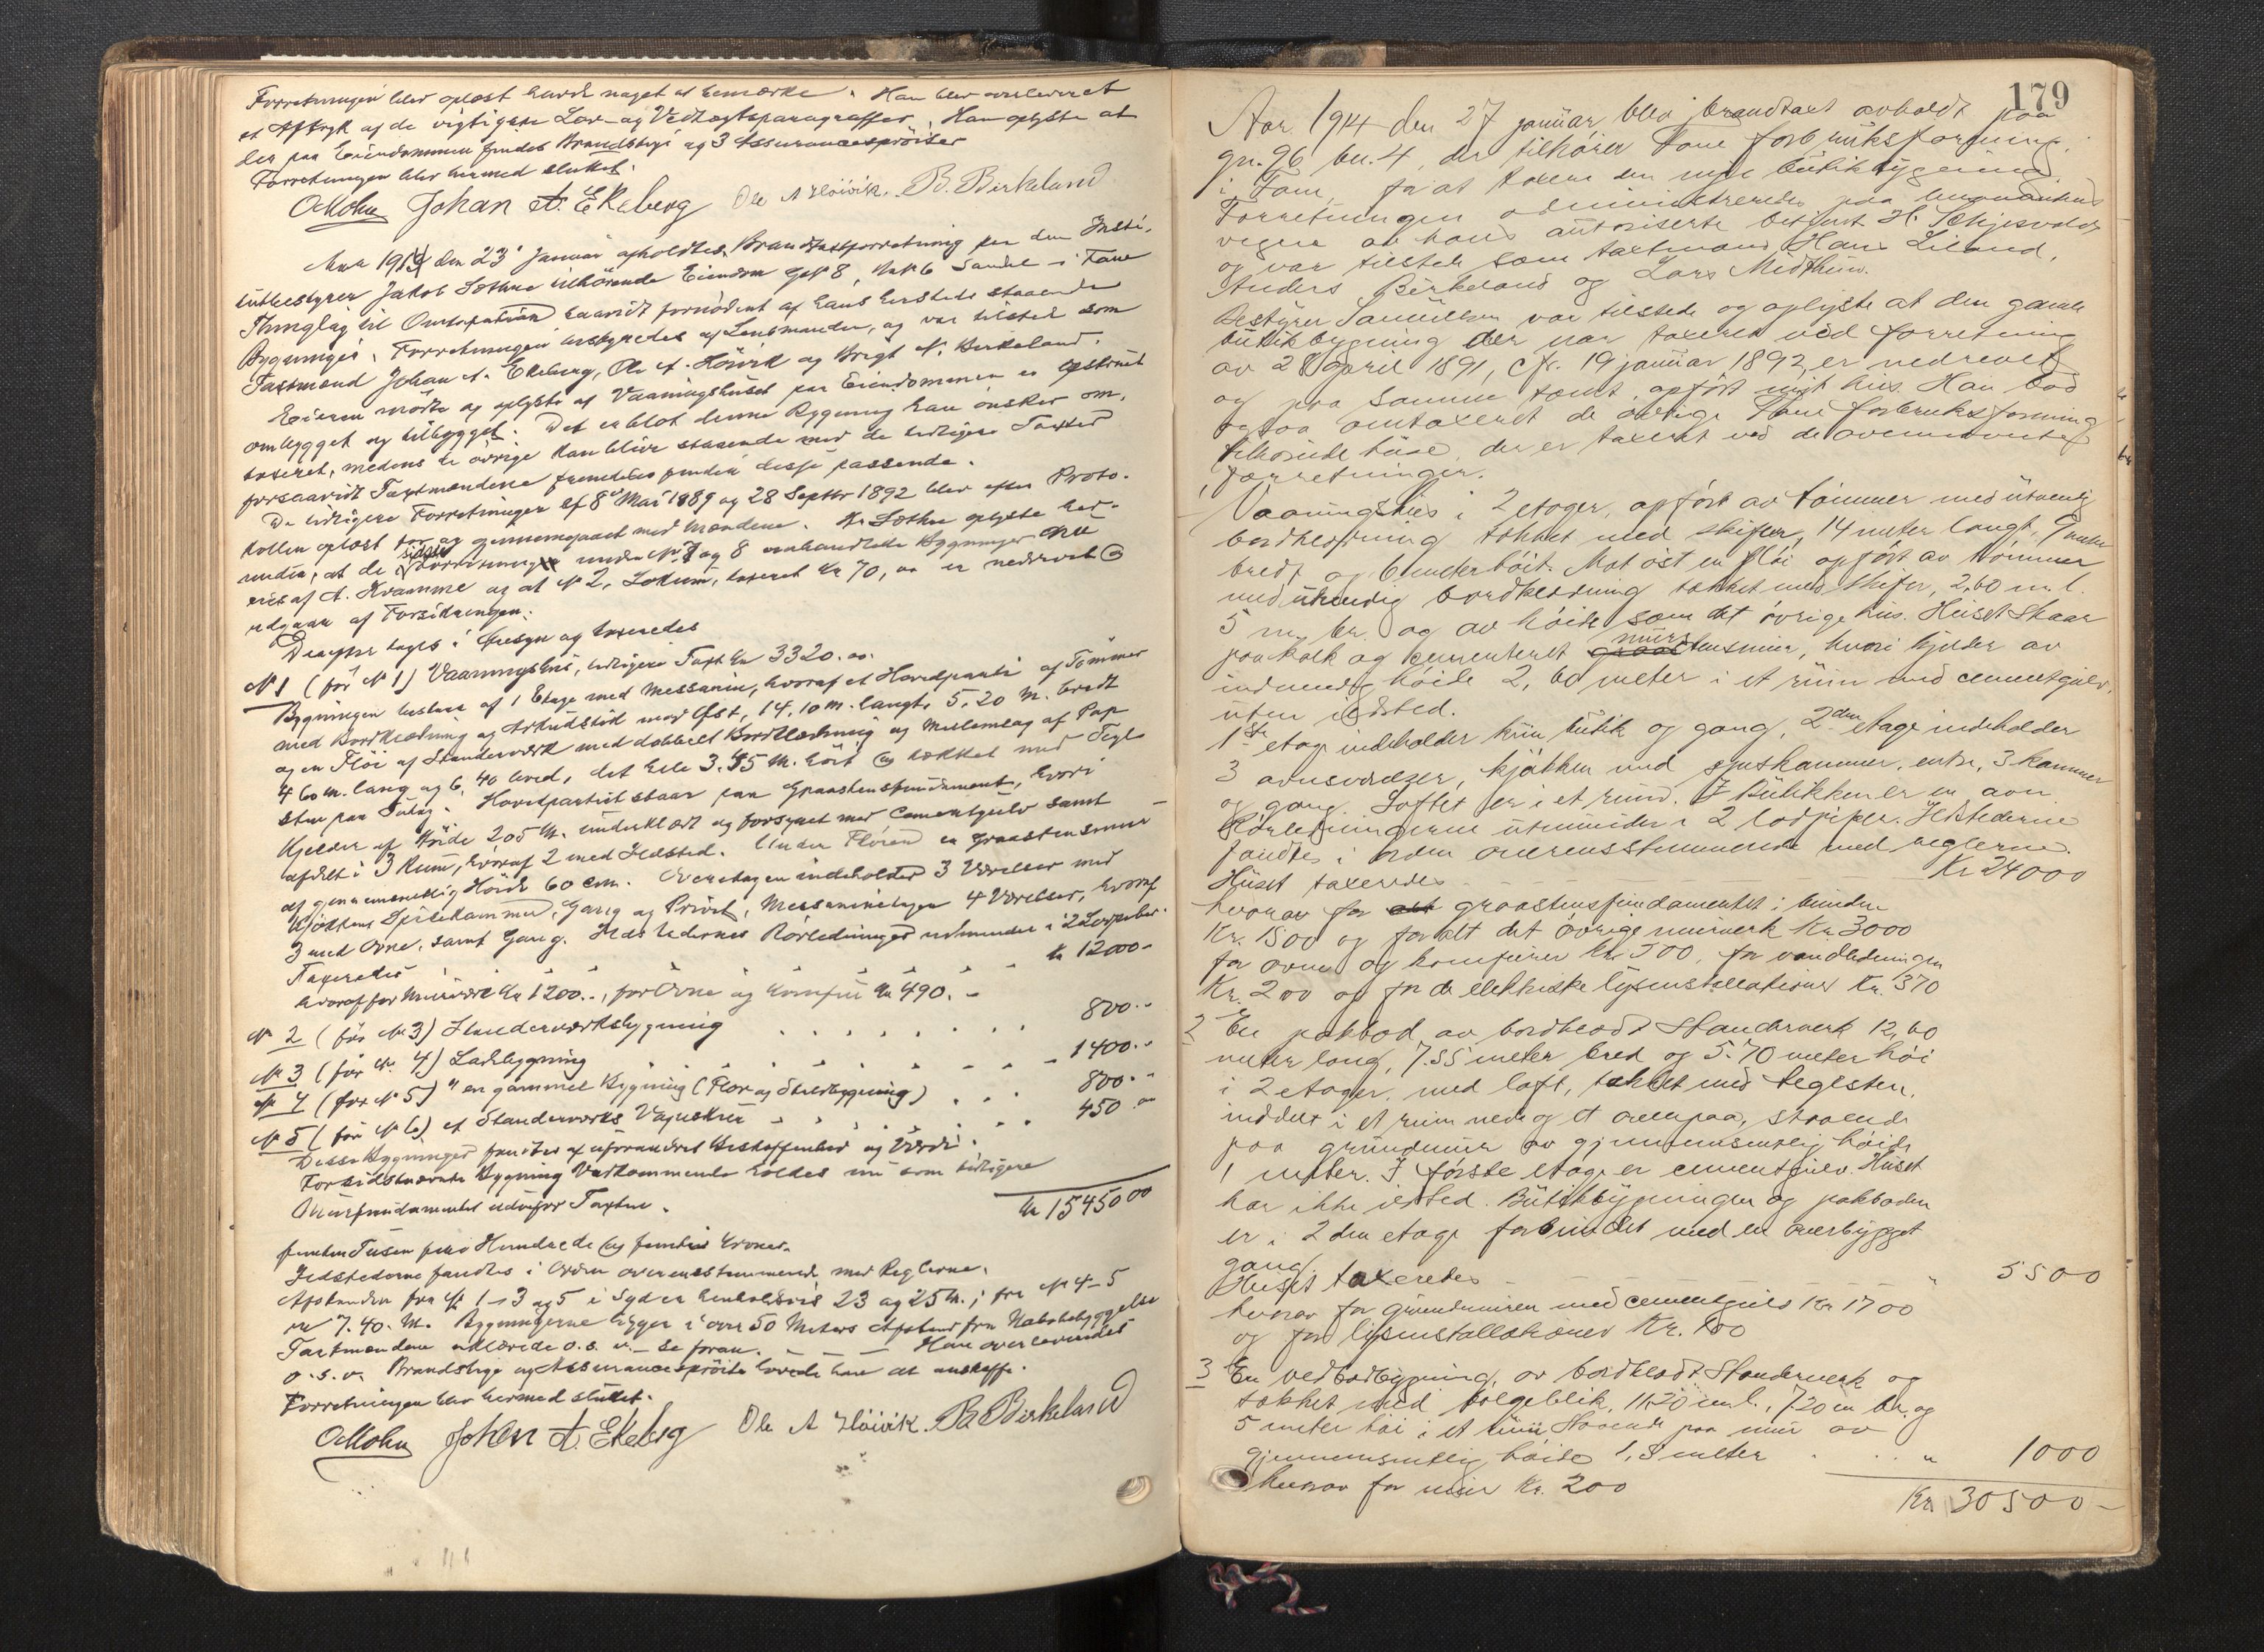 Forretningen blev oplæst havde noget at bemærke. Han blev overleveret
et Aftryk af de vigtigste Lov- og Vedtægtsparagraffer. Han oplyste at
der paa Eiendommen findes Brandstige og 3 Assurancesprøiter
Forretningen blev hermed sluttet.
OMohn Johan A. Ekeberg Ole A Høivik. B. Birkeland
Aar 1914 den 23 Januar afholdtes Brandtaxtforretning paa den Insti-
tutbestyrer Jakob Sæthre tilhørende Eiendom gN 8, bN 6 Sandal i Fane
Thinglag til Omtaxation saavidt fornødent af hans hersteds staaende
Bygninger. Forretningen bestyredes af Lensmanden, og var tilstede som
Taxtmænd Johan A. Ekeberg, Ole A. Høivik og Brigt N. Birkeland.
Eieren mødte og oplyste at Vaaningshuset paa Eiendommen er
ombygget og tilbygget. Det er blot denne Bygning han ønsker om-
taxeret, medens de øvrige kan blive staaende med de tidligere Taxter
forsaavidt Taxtmændene fremdeles finder disse passende.
De tidligere Forretninger af 8 Mai 1889 og 28 Septbr 1892 blev efter Proto-
kollen oplæst for og gjennemgaaet med Mændene. Hr Sæthre oplyste her-
under, at de sidste Forretninger under No 7 og 8 omhandlede Bygninger nu
eies af A. Kvamme og at No 2, Lokum, taxeret Kr 70, er nedrevet og
udgaar af Forsikringen.
Derefter toges i Øiesyn og taxeredes
No 1 (før No 1) Vaaningshus, tidligere Taxt Kr 3320.00.
Bygningen bestaar af 1 Etage med Messanin, hvoraf et Hovedparti af Tømmer
med Bordklædning og med Øst, 14.10 M. langt, 5,20 M. bredt
og en Fløi af Standerværk med dobbelt Bordklædning og Mellemlag af Pap
4 60 M. lang og 6,40 bred, det hele 3.45 M. høit og tækket med Tegl-
sten paa Sutag. Hovedpartiet staar paa Graastensfundament, hvori
Kjelder af Høide 2,05 M. underklædt og forsynet med Cementgulv samt
afdelt i 3 Rum, hvoraf 2 med Ildsted. Under Fløien er Graastensmur
af gjennemsnitlig Høide 60 Cm. Overetagen indeholder 3 Værelser med
Kjøkken, Spisekammer, Gang og Privet, Messaninetagen 4 Værelser, hvoraf
3 med Ovne, samt Gang. Ildstedernes Rørledninger udmunder i 2 Lovpiber.
Taxeredes Kr 12000-
hvoraf for Murværk Kr 1200.-, for Ovne og Komfur Kr 490.-
No 2 (før No 3) Standerværksbygning 800.-
No 3 (før No 4) Ladebygning 1400.-
No 4 (før No 5) " en gammel Bygning (Flor og Staldbygning) 800.-
No 5 (før No 6) et Standerværks Vognskur 450 "
Disse Bygninger fandtes af uforandret Beskaffenhed og Værdi.
Forsidstnævnte Bygning Vedkommende holdes nu som tidligere
Murfundamentet udenfor Taxten.
Kr 15450 00
femten Tusen fire Hundrede og femti Kroner.
Ildstederne fandtes i Orden overensstemmende med Reglerne.
Afstanden fra No 1-3 og 5 i Syd er henholdsvis 23 og 25 M.; fra No 4-5
er 7.40. M. Bygningerne ligger i over 50 Meters Afstand fra Nabobebyggelse
Taxtmændene erklærede o.s.v. - se foran. - Han overleveredes
o.s.v. Brandstige og Assurancesprøite lovede han at anskaffe.
Forretningen blev hermed sluttet.
OMohn Johan A. Ekeberg Ole A Høivik. B. Birkeland
179
Aar 1914 den 27 januar blev brandtaxt avholdt paa
gn. 96 bn. 4, der tilhører Fane forbruksforening
i Fane, for at taxere den nye butikbygning.
Forretningen administreredes paa lensmandens
vegne av hans autoriserte betjent H. Schjesvold
og var tilstede som taxtmænd Hans Liland,
Anders Birkeland og Lars Midthun.
Bestyrer Samuelsen var tilstede og oplyste at den gamle
butikbygning der var taxeret ved forretning
av 28 april 1891, cfr. 19 januar 1892, er nedrevet
og paa samme tomt opført nyt hus. Han bad
ogsaa omtaxeret de øvrige Fane forbruksforening
tilhørende huse, der er taxeret ved de ovennævnte
forretninger.
1 Vaaningshus i 2 etager, opført av tømmer med utvendig
bordklædning tækket med skifer, 14 meter langt, 9 meter
bredt og 6 meter høit. Mot øst en fløi opført av tømmer
med utvendig bordklædning tækket med skifer, 2,60 m. l.
5 m. br. og av høide som det øvrige hus. Huset staar
paa kalk og cementeret murstensmur, hvori kjelder av
indvendig høide 2,60 meter i et rum med cementgulv,
uten ildsted.
1ste etage indeholder kun butik og gang, 2den etage indeholder
3 ovnsværelser, kjøkken med spiskammer, entre, 3 kammer
og gang. Loftet er i et rum. I Butikken er en ovn
Rørledningerne utmunder i 2 lovpiper. Ildstederne
fandtes i orden overensstemmende med reglerne.
Huset taxeredes Kr 24000
hvorav for graastensfundamentet i bunden
Kr. 1500 og for alt det øvrige murverk Kr. 3000
for ovne og komfurer kr. 300, for vandledningen
Kr. 200 og for de elektriske lysinstallationer Kr. 370
2 En pakbod av bordklædt Standerverk 12,60
meter lang, 7.55 meter bred og 5.70 meter høi
i 2 etager, med loft, tækket med teglsten,
inddelt i et rum nede og et ovenpaa, staaende
paa grundmur av gjennemsnitlig høide
1 meter. I første etage er cementgulv. Huset
har ikke ildsted. Butikbygningen og pakboden
er i 2den etage forbundet med en overbygget
gang.
Huset taxeredes " 5500
hvorav for grundmuren med cementgulv Kr 1700
og for lysinstallationer Kr. 100
3 En vedbodbygning, av bordklædt Standerverk og
tækket med bølgeblik, 11,20 m. l., 7.20 m br. og
5 meter høi i et rum Staaende paa mur av
gjennemsnitlig høide 1,3 meter " 1000
hvorav for mur Kr. 200
Kr. 30500-